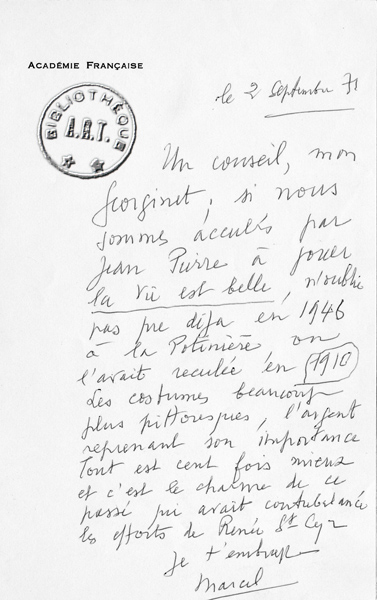 ACADÉMIE FRANÇAISE
BIBLIOTHÈQUE
A.R.T.
le 2 Septembre 71
Un conseil, mon
Georginet, si nous
sommes acculés par
Jean Pierre à jouer
la vie est belle, n'oublie
pas que déjà en 1946
à la Potinière on
l'avait reculée en 1910
Les costumes beaucoup
plus pittoresques, l'argent
reprenant son importance
Tout est cent fois mieux
et c'est le charme de ce
passé qui avait contrebalancé
les efforts de Renée St Cyr
Je t'embrasse
Marcel